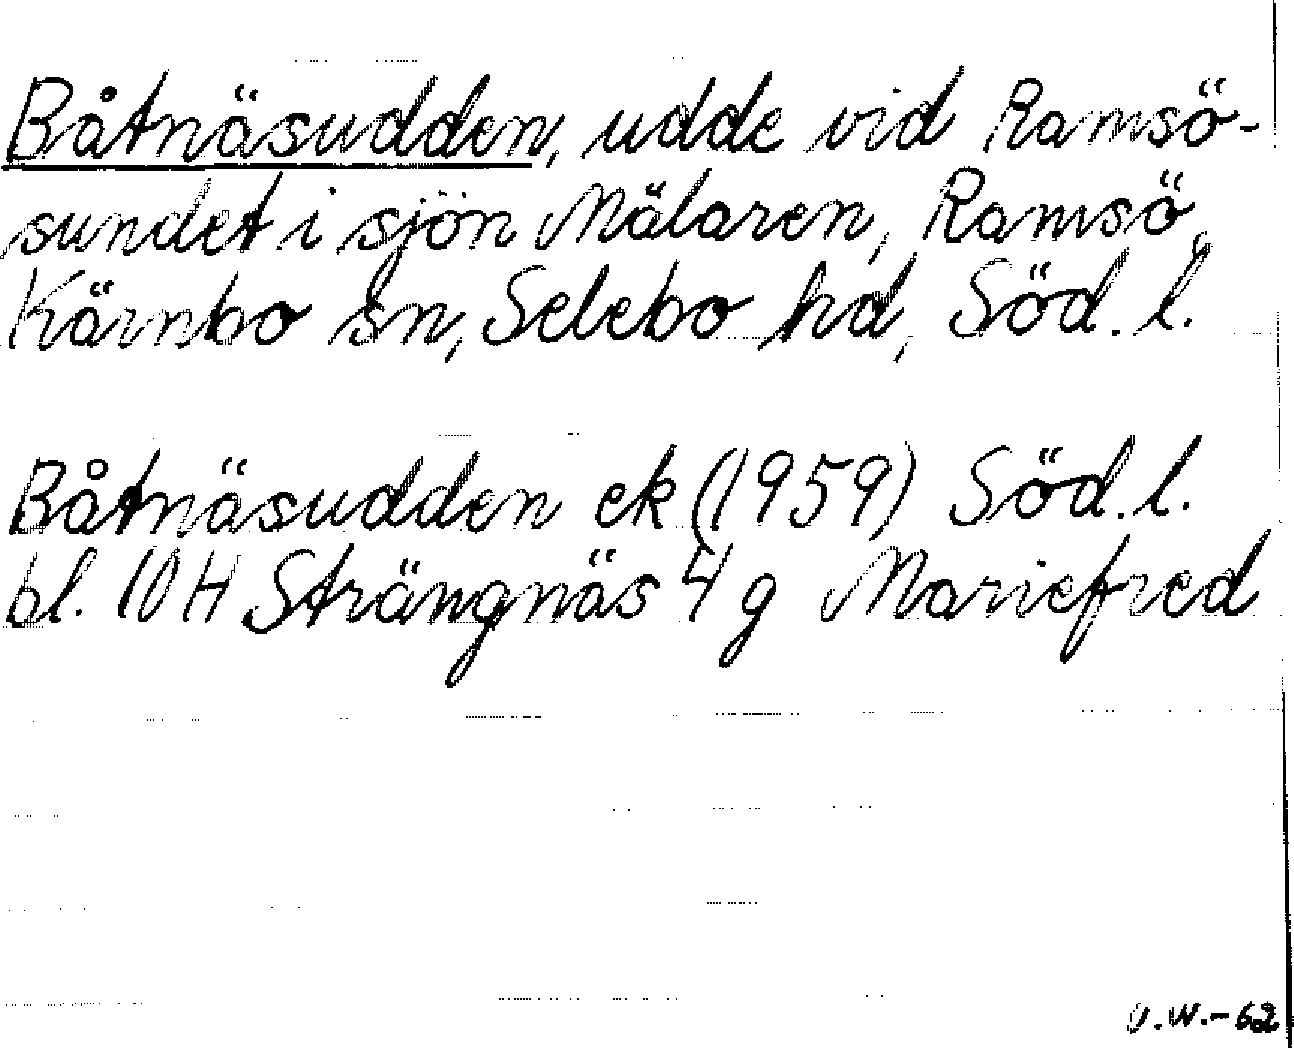 Båtnäsudden, udde vid Ramsö-
sundet i sjön Mälaren, Ramsö,
Kärnbo sn, Selebo hd, Söd. l.
Båtnäsudden ek (1959) Söd. l.
bl. 10 H Strängnäs 4 g Mariefred
U.W.-62